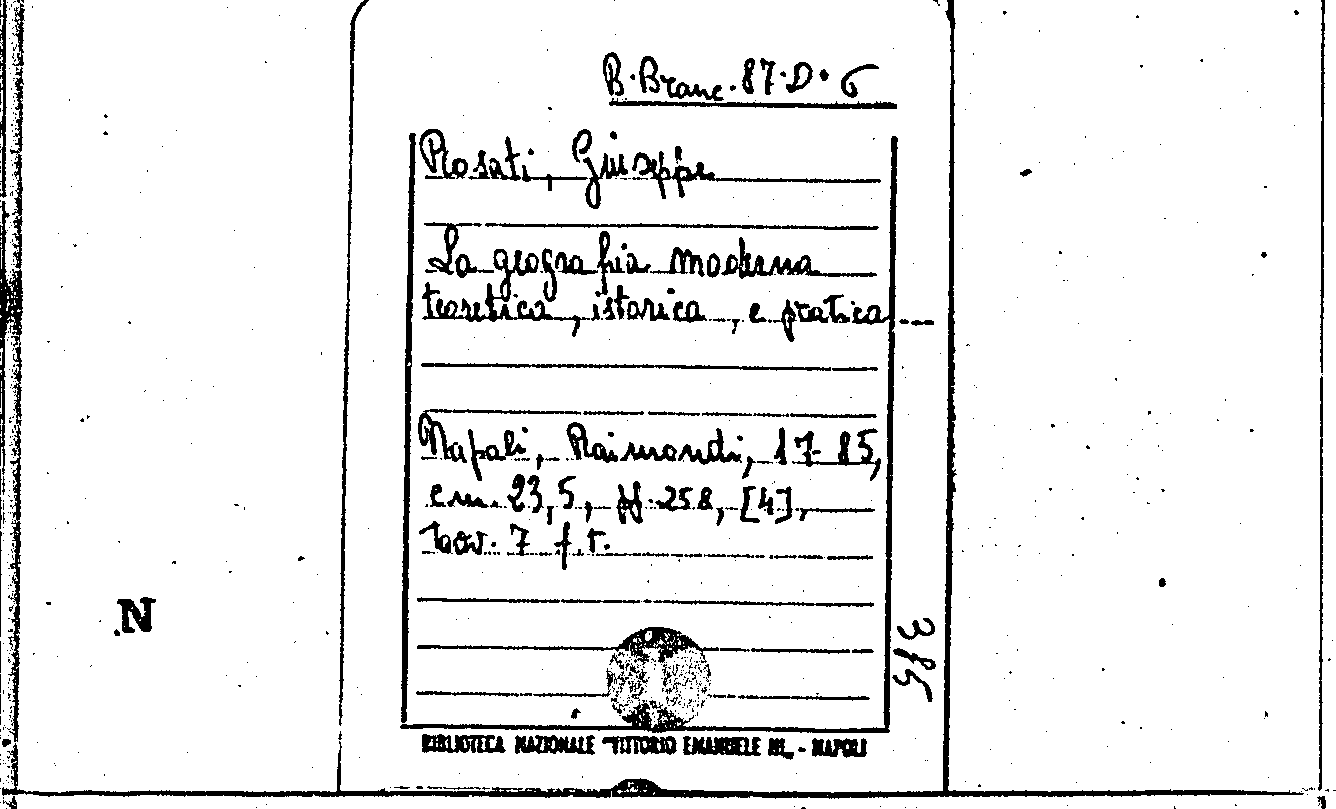 B. Branc. 87.D.6
Rosati, Giuseppe
La geografia moderna
teoretica, istorica, e pratica ...
Napoli, Raimondi, 1785,
cm. 23,5, pp. 258, [4],
tav. 7 f.t.
N
BIBLIOTECA NAZIONALE "VITTORIO EMANUELE III„ - NAPOLI